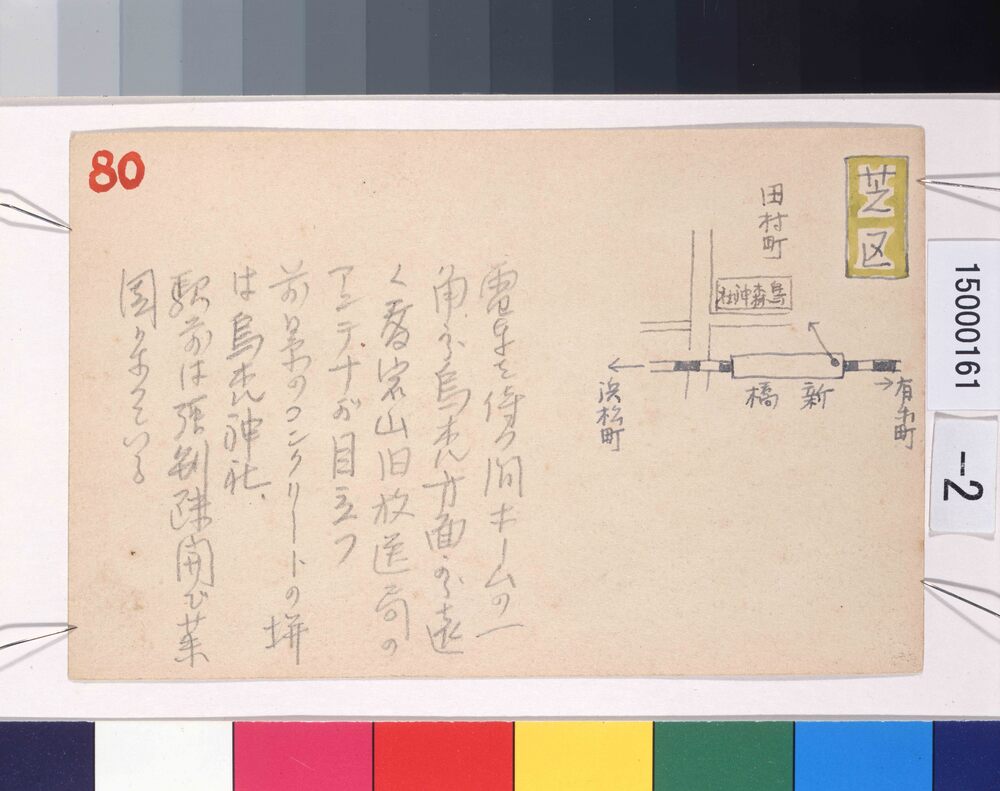 80
芝区
田村町
烏森神社
新橋
有楽町
浜松町
電車を待つ間ホームの一
角から烏森方面から遠
く愛宕山旧放送局の
アンテナが目立つ
前景のコンクリートの塀
は烏森神社、
駅前は強制疎開で菜
園になつている
15000161
-2